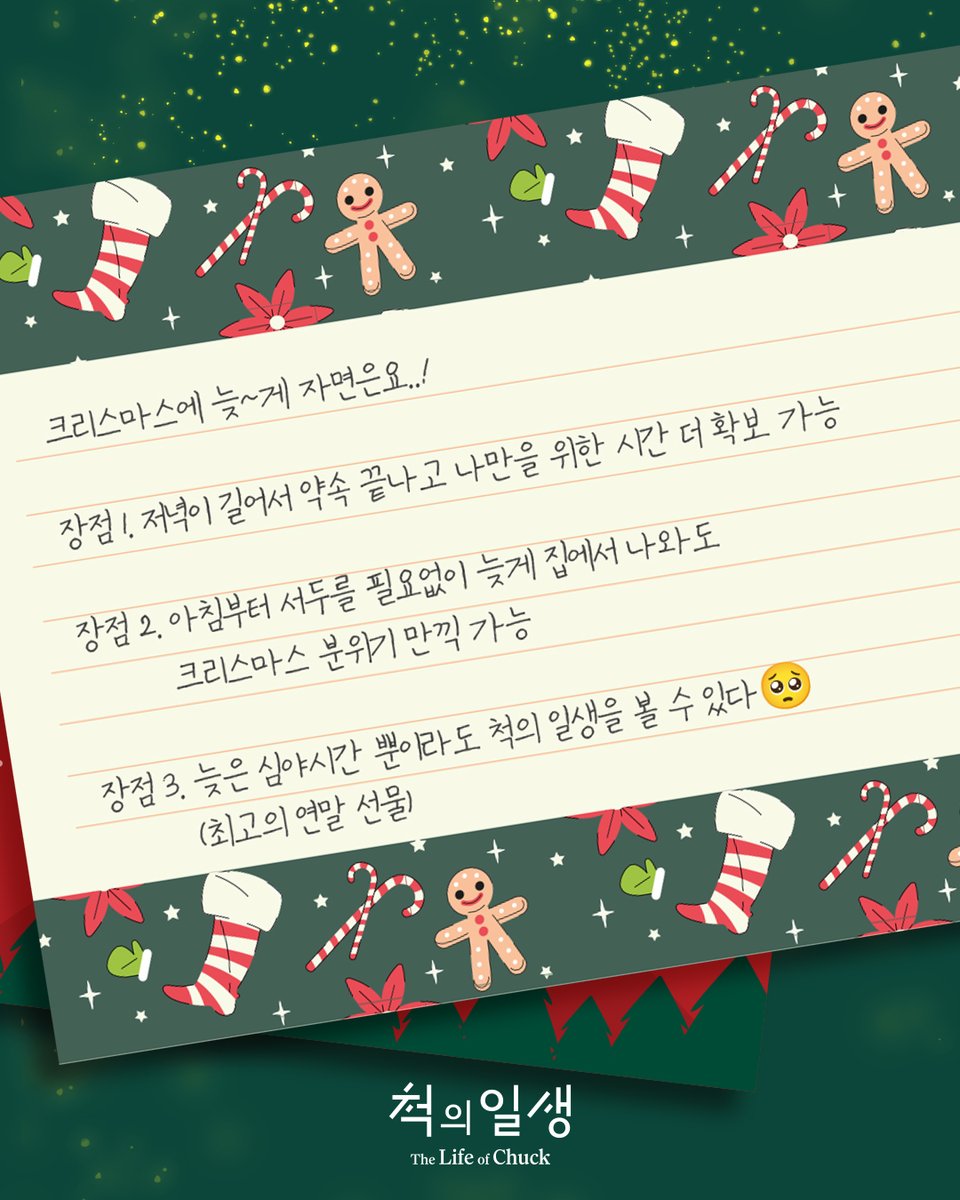 크리스마스에 늦~게 자면은요..!
장점 1. 저녁이 길어서 약속 끝나고 나만을 위한 시간 더 확보 가능
장점 2. 아침부터 서두를 필요없이 늦게 집에서 나와도
크리스마스 분위기 만끽 가능
장점 3. 늦은 심야시간 뿐이라도 척의 일생을 볼 수 있다🥺
(최고의 연말 선물)
척의 일생
The Life of Chuck